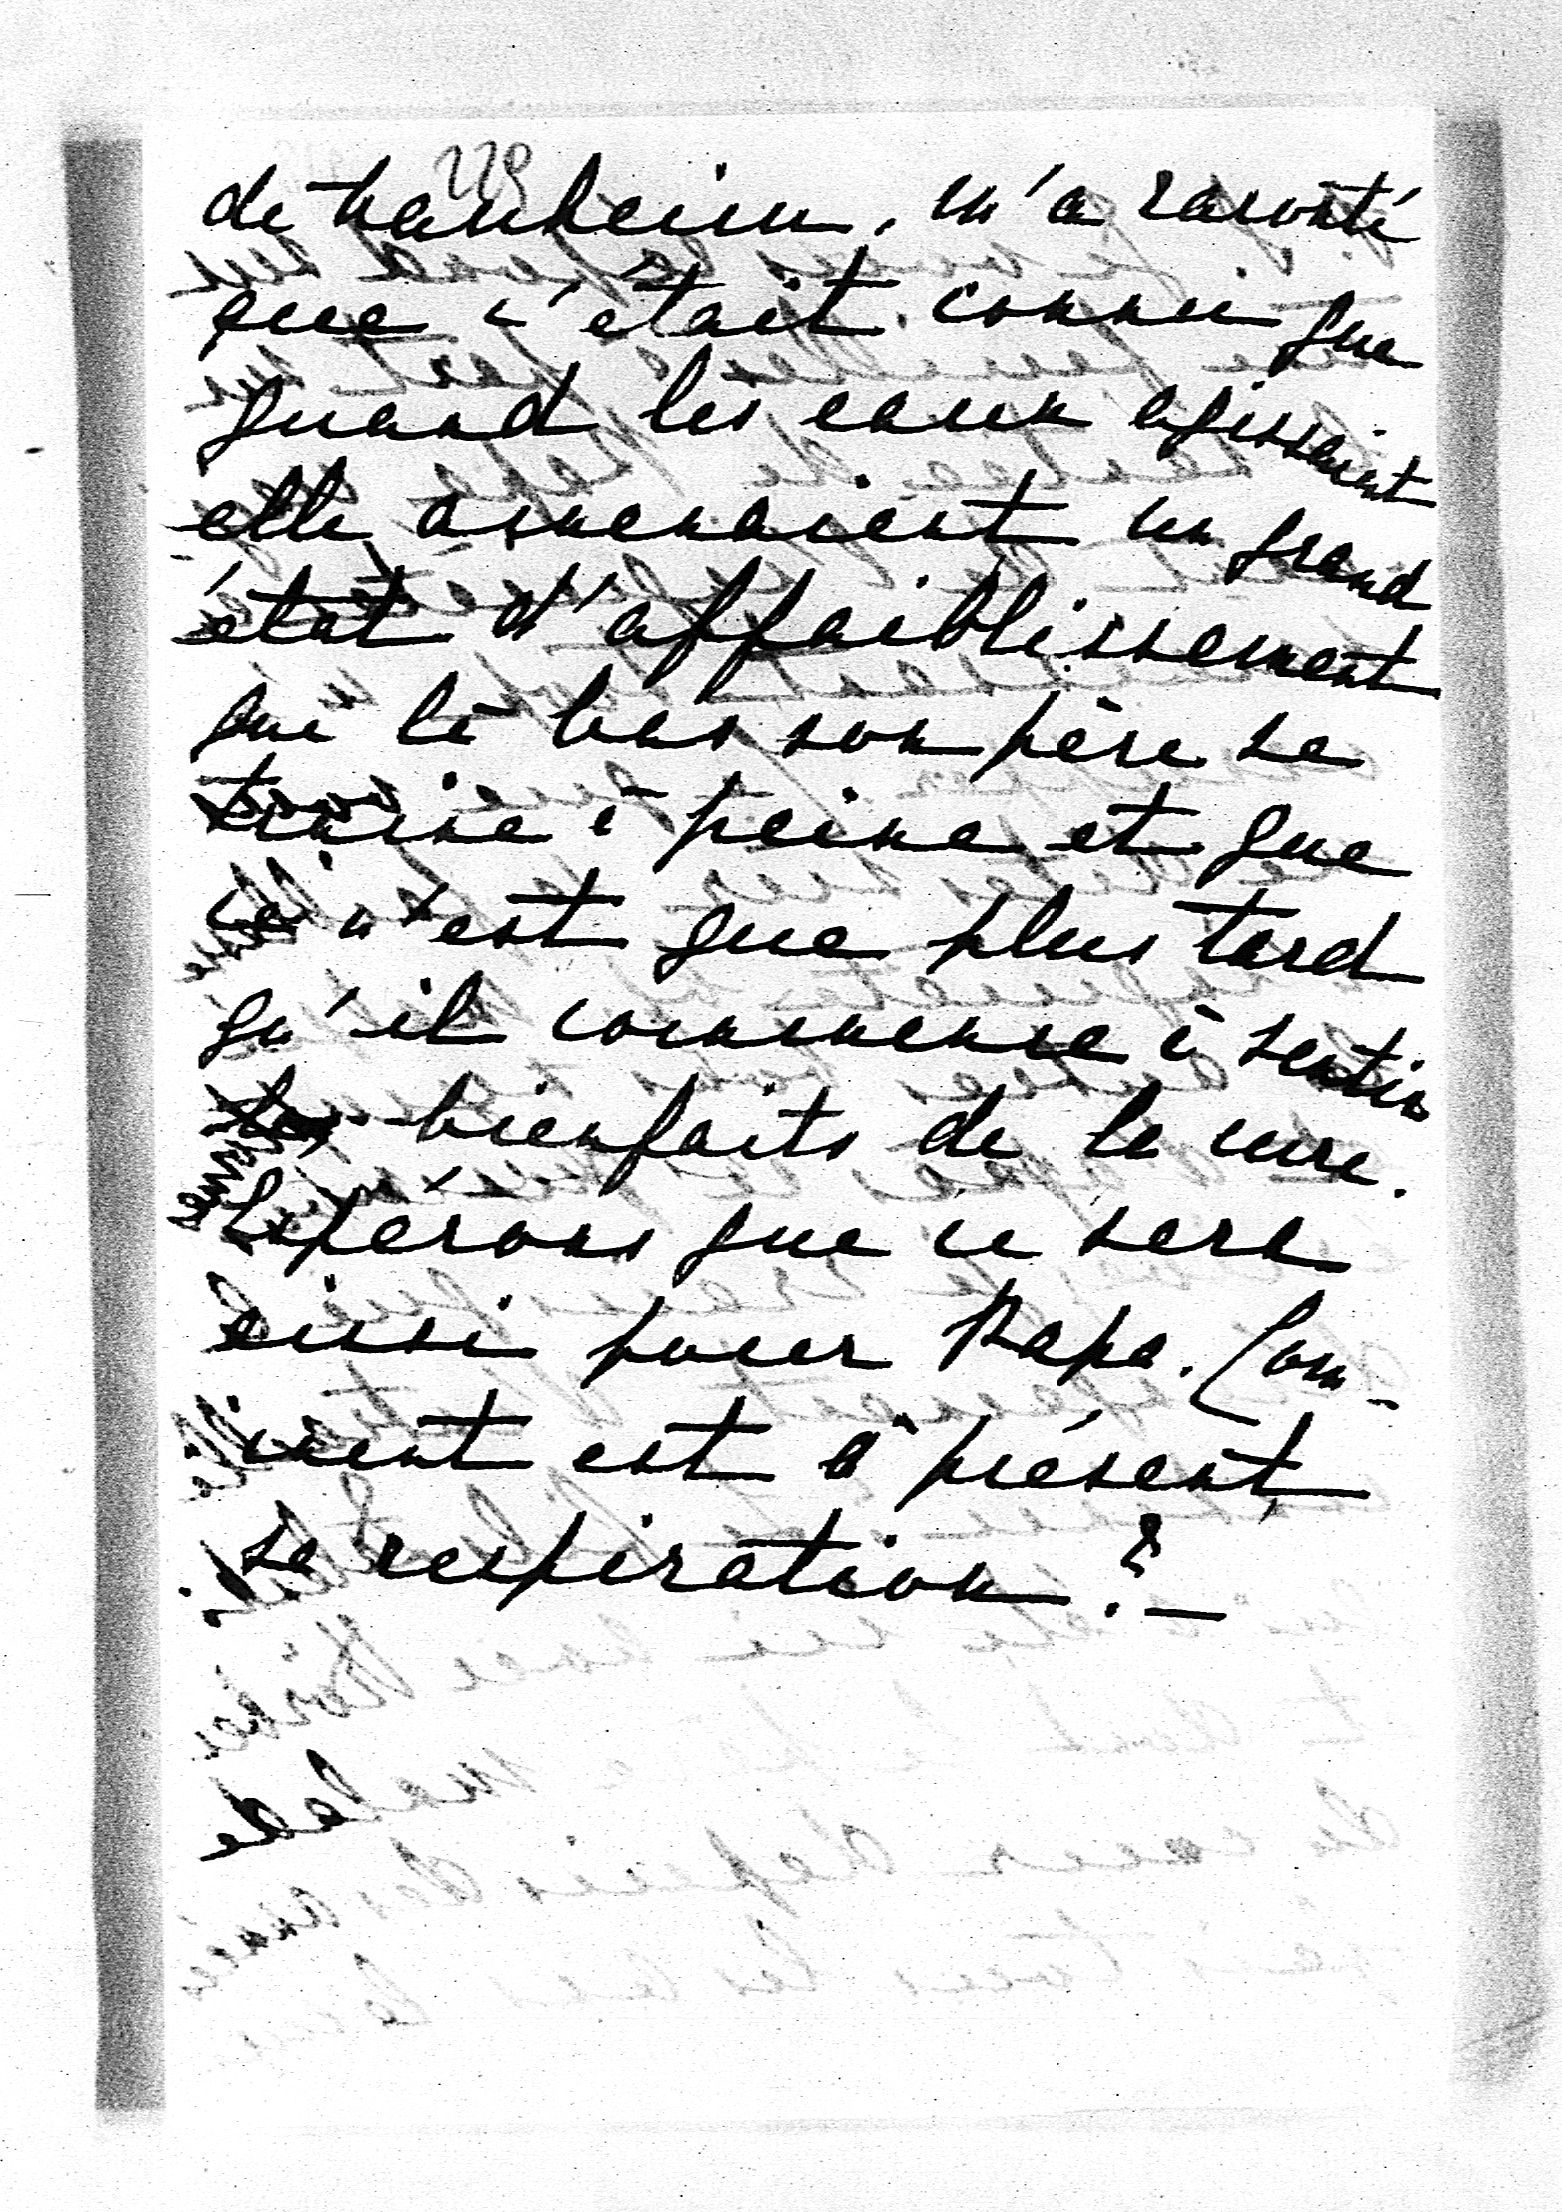 de Nauheim, m'a raconté
que c'était connu que
quand les eaux agissaient
elle amenaient un grand
état d'affaiblissement
que là bas son père se
traine à peine et que
ce n'est que plus tard
qu'il commence à sentir
les bienfaits de la cure.
Espérons que ce sera
ainsi pour Papa. Com-
ment est à présent
sa respiration ? —